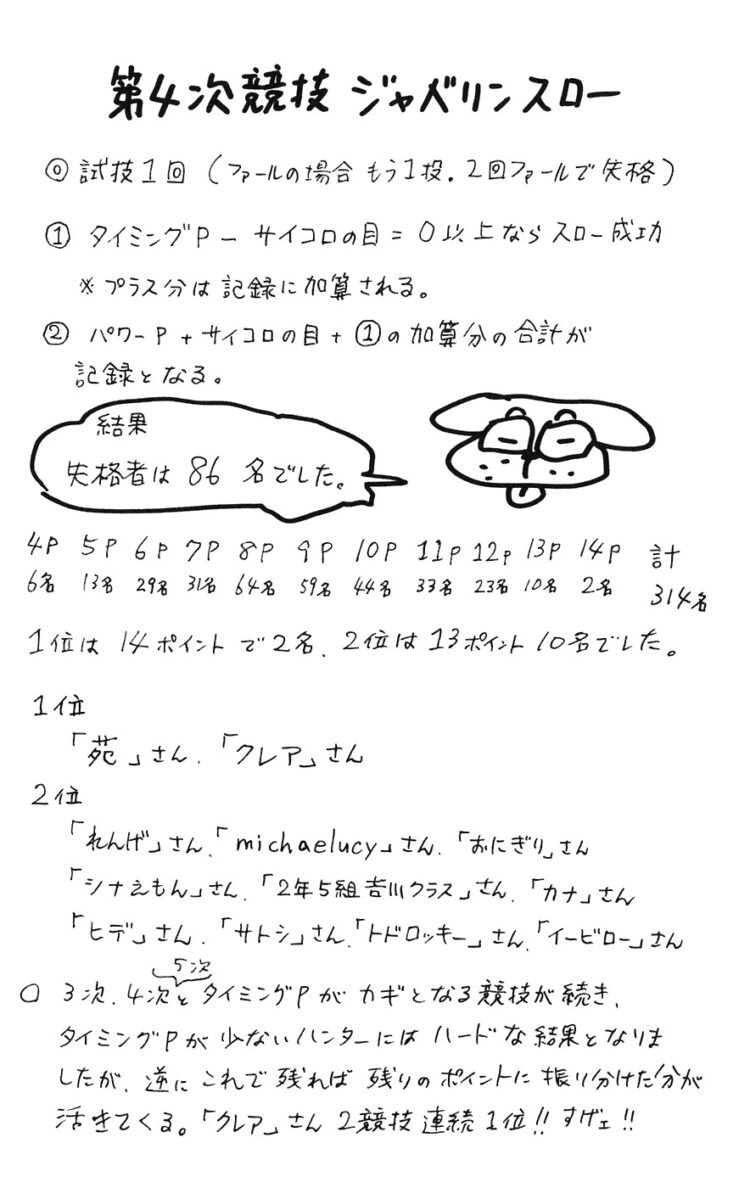 第4次競技 ジャベリンスロー
◎ 試技1回 (ファールの場合 もう1投. 2回ファールで失格)
① タイミングP − サイコロの目 = 0以上ならスロー成功
※ プラス分は記録に加算される。
② パワーP + サイコロの目 + ①の加算分の合計が
記録となる。
結果
失格者は 86 名でした。
4P 5P 6P 7P 8P 9P 10P 11P 12P 13P 14P 計
6名 13名 29名 31名 64名 59名 44名 33名 23名 10名 2名 314名
1位は 14ポイントで2名、2位は13ポイント10名でした。
1位
「苑」さん、「クレア」さん
2位
「れんげ」さん、「michaelucy」さん、「おにぎり」さん
「シナえもん」さん、「2年5組吉川クラス」さん、「カナ」さん
「ヒデ」さん、「サトシ」さん、「トドロッキー」さん、「イービロー」さん
5次
○ 3次、4次とタイミングPが カギとなる競技が続き、
タイミングPが少ないハンターには ハードな結果となりま
したが、逆に これで残れば 残りのポイントに振り分けた分が
活きてくる。「クレア」さん 2競技連続1位!! すげェ!!